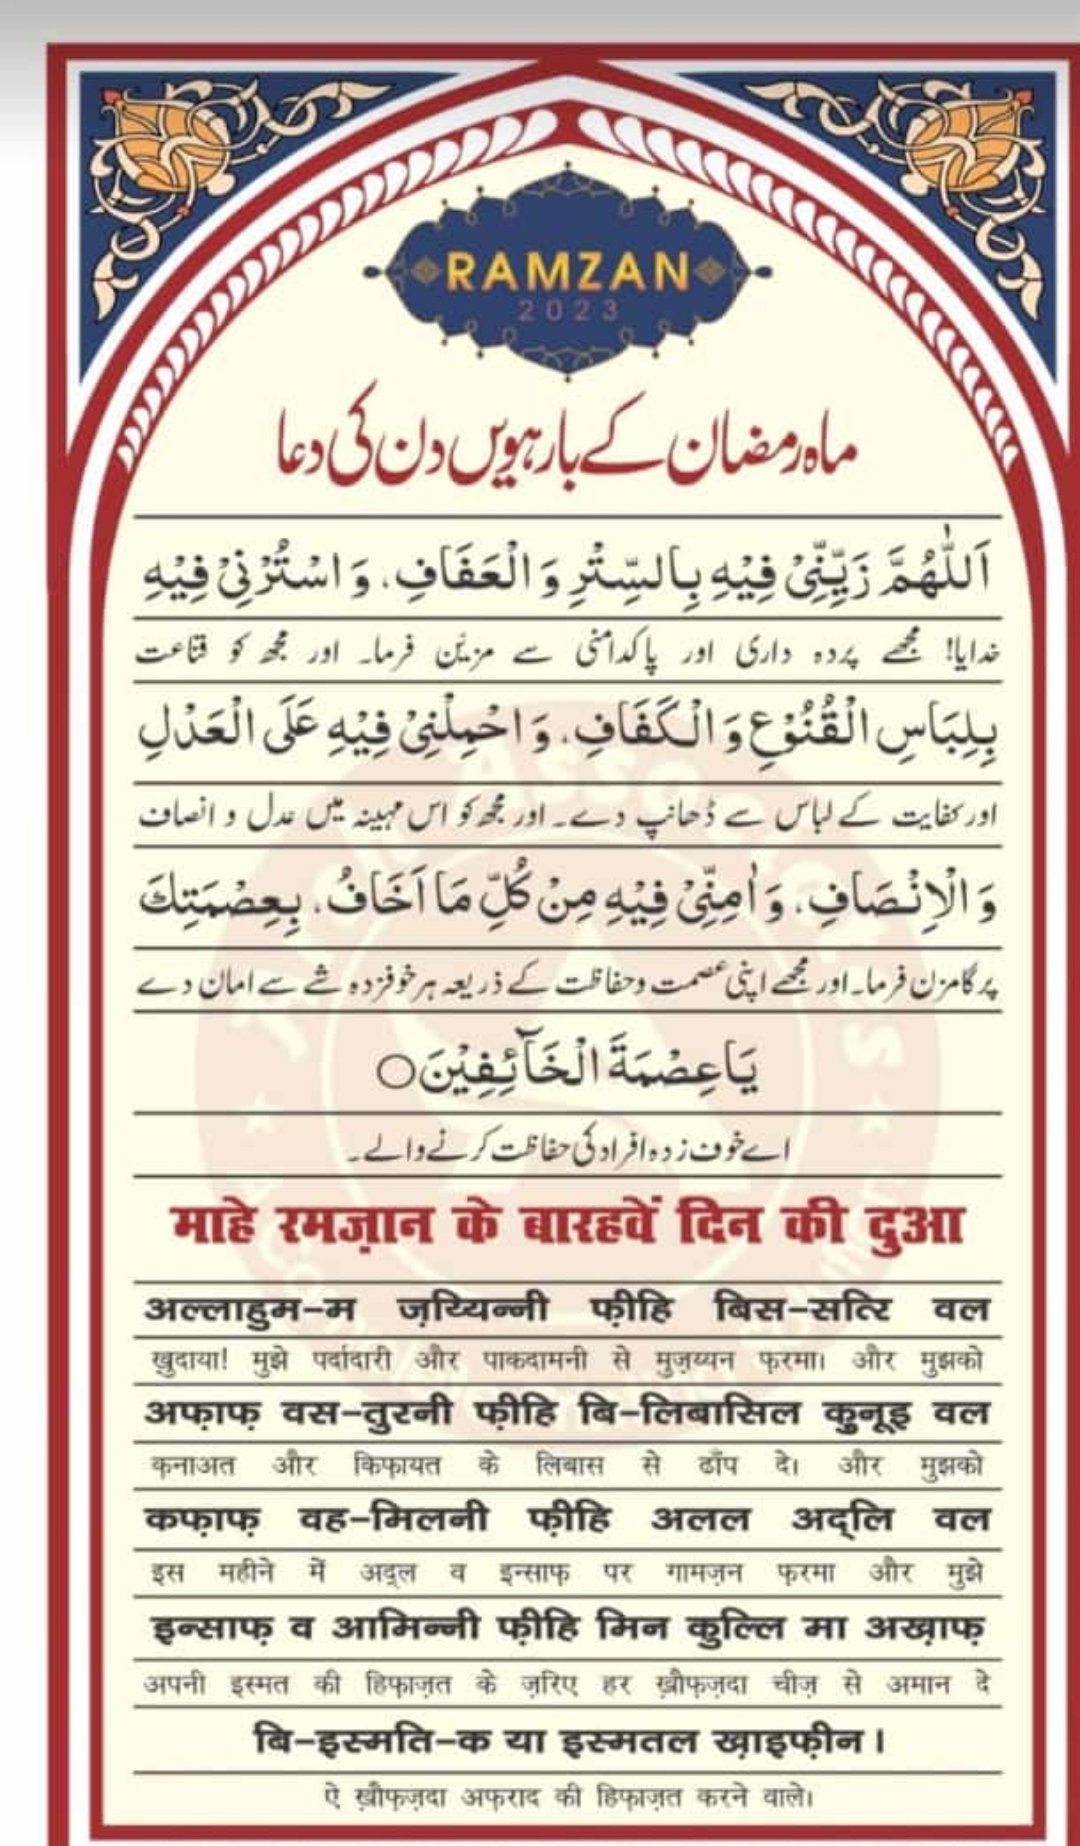 RAMZAN
2023
ماہ رمضان کے بارہویں دن کی دعا
اَللّٰهُمَّ زَيِّنِّيْ فِيْهِ بِالسِّتْرِ وَ الْعَفَافِ. وَ اسْتُرْنِيْ فِيْهِ
خدایا! مجھے پردہ داری اور پاکدامنی سے مزیّن فرما۔ اور مجھ کو قناعت
بِلِبَاسِ الْقُنُوْعِ وَ الْكَفَافِ. وَ احْمِلْنِيْ فِيْهِ عَلَى الْعَدْلِ
اور کفایت کے لباس سے ڈھانپ دے۔ اور مجھ کو اس مہینہ میں عدل و انصاف
وَ الْاِنْصَافِ. وَ اٰمِنِّيْ فِيْهِ مِنْ كُلِّ مَا اَخَافُ. بِعِصْمَتِكَ
پر گامزن فرما۔ اور مجھے اپنی عصمت و حفاظت کے ذریعہ ہر خوفزدہ شے سے امان دے
يَا عِصْمَةَ الْخَآئِفِيْنَ○
اے خوف زدہ افراد کی حفاظت کرنے والے۔
माहे रमज़ान के बारहवें दिन की दुआ
अल्लाहुम-म ज़य्यिन्नी फ़ीहि बिस-सत्रि वल
ख़ुदाया! मुझे पर्दादारी और पाकदामनी से मुज़य्यन फ़रमा। और मुझको
अफ़ाफ़ वस-तुरनी फ़ीहि बि-लिबासिल क़ुनूइ वल
क़नाअत और किफ़ायत के लिबास से ढाँप दे। और मुझको
कफ़ाफ़ वह-मिलनी फ़ीहि अलल अद्लि वल
इस महीने में अद्ल व इन्साफ़ पर गामज़न फ़रमा और मुझे
इन्साफ़ व आमिन्नी फ़ीहि मिन कुल्लि मा अख़ाफ़
अपनी इस्मत की हिफ़ाज़त के ज़रिए हर ख़ौफ़ज़दा चीज़ से अमान दे
बि-इस्मति-क या इस्मतल ख़ाइफ़ीन।
ऐ ख़ौफ़ज़दा अफ़राद की हिफ़ाज़त करने वाले।